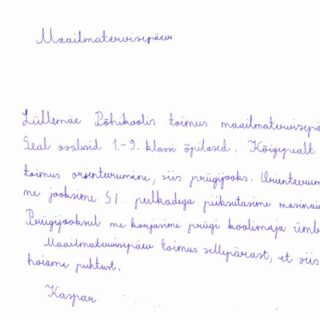 Maailmatervisepäev
Lüllemäe Põhikoolis toimus maailmatervisepä
Seal osalesid 1.-9. klassi õpilased. Kõigepealt
toimus orienteerumine, siis prügijooks. Orienteerum
me jooksime SI pulkadega piiksutasime masinais
Prügijooksul me korjasime prügi koolimaja ümb
Maailmatervisepäev toimus sellepärast, et siis
hoiame puhtust.
Kaspar